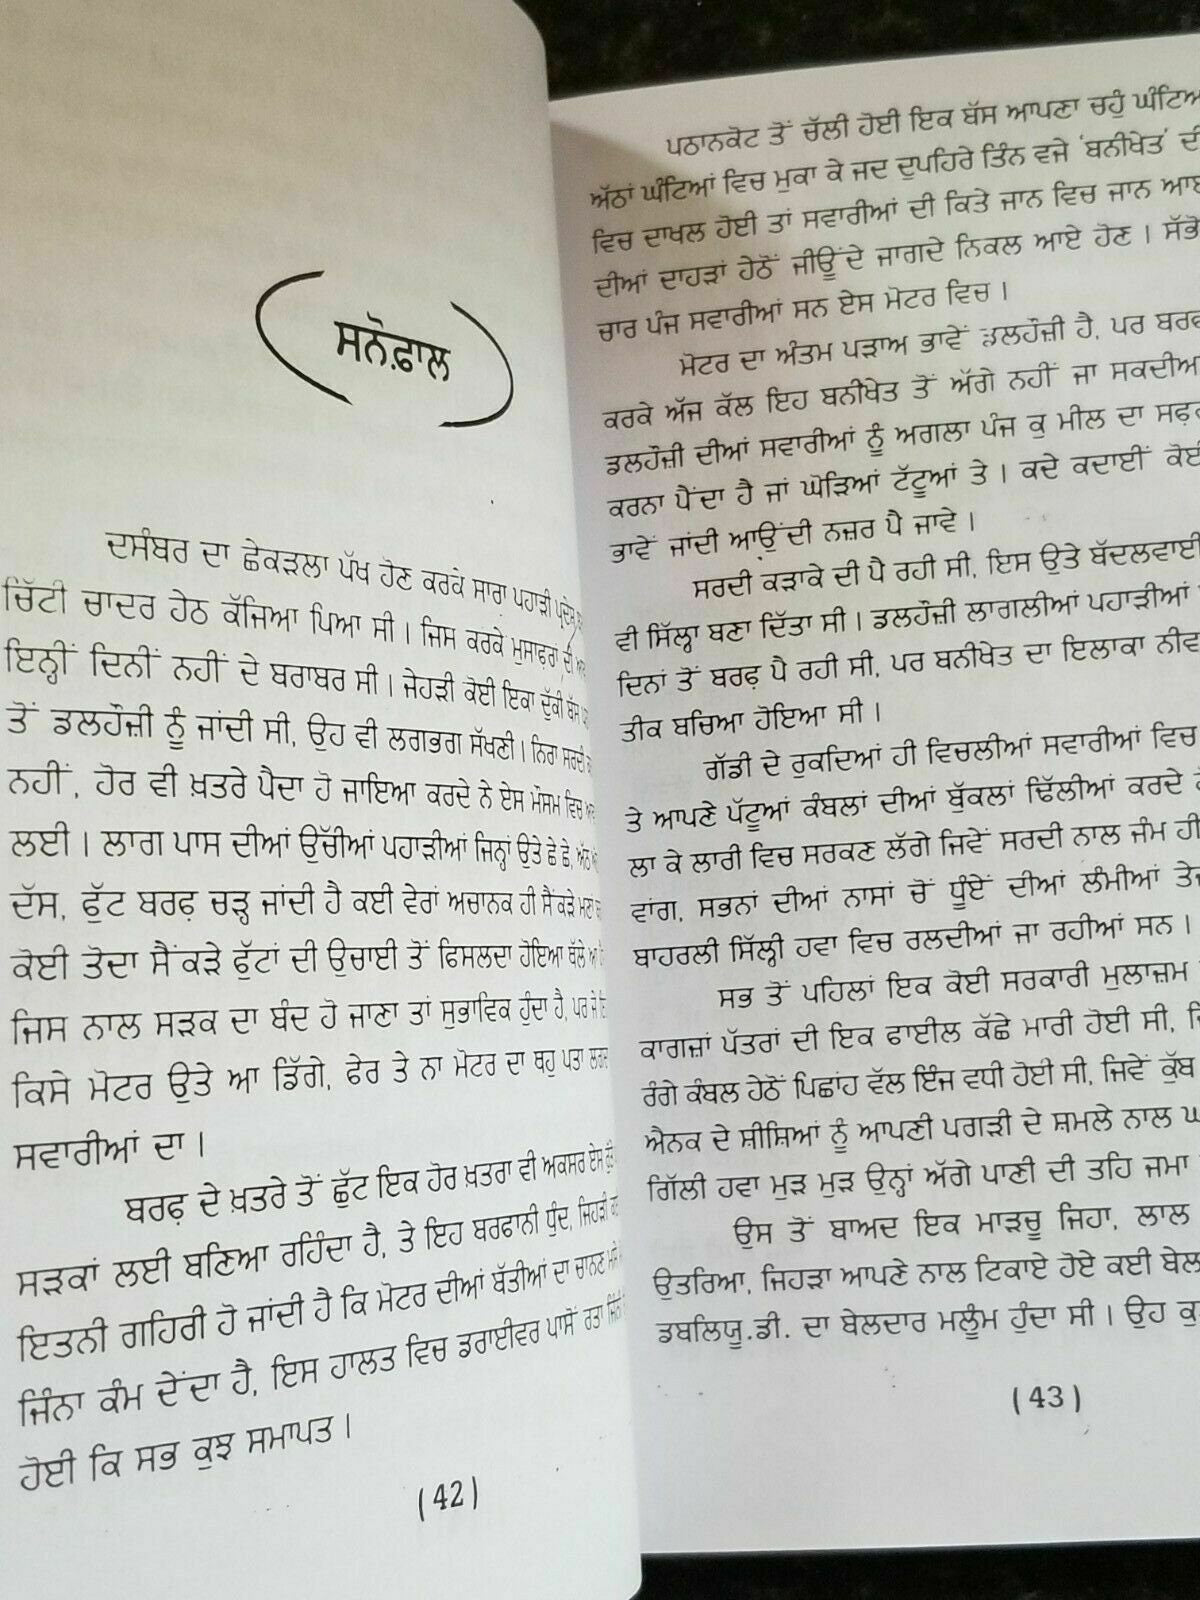 ਸਨੋਫ਼ਾਲ
ਦਸੰਬਰ ਦਾ ਛੇਕੜਲਾ ਪੱਖ ਹੋਣ ਕਰਕੇ ਸਾਰਾ ਪਹਾੜੀ ਪ੍ਰਦੇਸ਼
ਚਿੱਟੀ ਚਾਦਰ ਹੇਠ ਕੱਜਿਆ ਪਿਆ ਸੀ । ਜਿਸ ਕਰਕੇ ਮੁਸਾਫ਼ਰਾਂ ਦੀ
ਇਨ੍ਹੀਂ ਦਿਨੀਂ ਨਹੀਂ ਦੇ ਬਰਾਬਰ ਸੀ । ਜੇਹੜੀ ਕੋਈ ਇਕਾ ਦੁੱਕੀ ਬੱਸ
ਤੋਂ ਡਲਹੌਜ਼ੀ ਨੂੰ ਜਾਂਦੀ ਸੀ, ਉਹ ਵੀ ਲਗਭਗ ਸੱਖਣੀ । ਨਿਰਾ ਸਰਦੀ
ਨਹੀਂ, ਹੋਰ ਵੀ ਖ਼ਤਰੇ ਪੈਦਾ ਹੋ ਜਾਇਆ ਕਰਦੇ ਨੇ ਏਸ ਮੌਸਮ ਵਿਚ
ਲਈ । ਲਾਗ ਪਾਸ ਦੀਆਂ ਉੱਚੀਆਂ ਪਹਾੜੀਆਂ ਜਿਨ੍ਹਾਂ ਉਤੇ ਛੇ ਛੇ, ਅੱਠ
ਦੱਸ, ਫੁੱਟ ਬਰਫ਼ ਚੜ੍ਹ ਜਾਂਦੀ ਹੈ ਕਈ ਵੇਰਾਂ ਅਚਾਨਕ ਹੀ ਸੈਂਕੜੇ ਮਣਾਂ
ਕੋਈ ਤੋਦਾ ਸੈਂਕੜੇ ਫੁੱਟਾਂ ਦੀ ਉਚਾਈ ਤੋਂ ਫਿਸਲਦਾ ਹੋਇਆ ਥੱਲੇ
ਜਿਸ ਨਾਲ ਸੜਕ ਦਾ ਬੰਦ ਹੋ ਜਾਣਾ ਤਾਂ ਸੁਭਾਵਿਕ ਹੁੰਦਾ ਹੈ, ਪਰ ਜੇ
ਕਿਸੇ ਮੋਟਰ ਉਤੇ ਆ ਡਿੱਗੇ, ਫੇਰ ਤੇ ਨਾ ਮੋਟਰ ਦਾ ਥਹੁ ਪਤਾ ਲਗਦਾ
ਸਵਾਰੀਆਂ ਦਾ ।
ਬਰਫ਼ ਦੇ ਖ਼ਤਰੇ ਤੋਂ ਛੁੱਟ ਇਕ ਹੋਰ ਖ਼ਤਰਾ ਵੀ ਅਕਸਰ ਏਸ ਰੁੱਤੇ
ਸੜਕਾਂ ਲਈ ਬਣਿਆ ਰਹਿੰਦਾ ਹੈ, ਤੇ ਇਹ ਬਰਫਾਨੀ ਧੁੰਦ, ਜਿਹੜੀ
ਇਤਨੀ ਗਹਿਰੀ ਹੋ ਜਾਂਦੀ ਹੈ ਕਿ ਮੋਟਰ ਦੀਆਂ ਬੱਤੀਆਂ ਦਾ ਚਾਨਣ
ਜਿੰਨਾ ਕੰਮ ਦੇਂਦਾ ਹੈ, ਇਸ ਹਾਲਤ ਵਿਚ ਡਰਾਈਵਰ ਪਾਸੋਂ ਰਤਾ ਜਿੰਨੀ
ਹੋਈ ਕਿ ਸਭ ਕੁਝ ਸਮਾਪਤ ।
(42)
ਪਠਾਨਕੋਟ ਤੋਂ ਚੱਲੀ ਹੋਈ ਇਕ ਬੱਸ ਆਪਣਾ ਚਹੁੰ ਘੰਟਿਆਂ
ਅੱਠਾਂ ਘੰਟਿਆਂ ਵਿਚ ਮੁਕਾ ਕੇ ਜਦ ਦੁਪਹਿਰੇ ਤਿੰਨ ਵਜੇ 'ਬਨੀਖੇਤ' ਦੀ
ਵਿਚ ਦਾਖਲ ਹੋਈ ਤਾਂ ਸਵਾਰੀਆਂ ਦੀ ਕਿਤੇ ਜਾਨ ਵਿਚ ਜਾਨ ਆਈ
ਦੀਆਂ ਦਾਹੜਾਂ ਹੇਠੋਂ ਜੀਊਂਦੇ ਜਾਗਦੇ ਨਿਕਲ ਆਏ ਹੋਣ । ਸੱਭੋ
ਚਾਰ ਪੰਜ ਸਵਾਰੀਆਂ ਸਨ ਏਸ ਮੋਟਰ ਵਿਚ ।
ਮੋਟਰ ਦਾ ਅੰਤਮ ਪੜਾਅ ਭਾਵੇਂ ਡਲਹੌਜ਼ੀ ਹੈ, ਪਰ ਬਰਫ਼
ਕਰਕੇ ਅੱਜ ਕੱਲ ਇਹ ਬਨੀਖੇਤ ਤੋਂ ਅੱਗੇ ਨਹੀਂ ਜਾ ਸਕਦੀਆਂ
ਡਲਹੌਜ਼ੀ ਦੀਆਂ ਸਵਾਰੀਆਂ ਨੂੰ ਅਗਲਾ ਪੰਜ ਕੁ ਮੀਲ ਦਾ ਸਫ਼ਰ
ਕਰਨਾ ਪੈਂਦਾ ਹੈ ਜਾਂ ਘੋੜਿਆਂ ਟੱਟੂਆਂ ਤੇ । ਕਦੇ ਕਦਾਈਂ ਕੋਈ
ਭਾਵੇਂ ਜਾਂਦੀ ਆਉਂਦੀ ਨਜ਼ਰ ਪੈ ਜਾਵੇ ।
ਸਰਦੀ ਕੜਾਕੇ ਦੀ ਪੈ ਰਹੀ ਸੀ, ਇਸ ਉਤੇ ਬੱਦਲਵਾਈ
ਵੀ ਸਿੱਲ੍ਹਾ ਬਣਾ ਦਿੱਤਾ ਸੀ । ਡਲਹੌਜ਼ੀ ਲਾਗਲੀਆਂ ਪਹਾੜੀਆਂ
ਦਿਨਾਂ ਤੋਂ ਬਰਫ਼ ਪੈ ਰਹੀ ਸੀ, ਪਰ ਬਨੀਖੇਤ ਦਾ ਇਲਾਕਾ ਨੀਵਾਂ
ਤੀਕ ਬਚਿਆ ਹੋਇਆ ਸੀ ।
ਗੱਡੀ ਦੇ ਰੁਕਦਿਆਂ ਹੀ ਵਿਚਲੀਆਂ ਸਵਾਰੀਆਂ ਵਿਚ
ਤੇ ਆਪਣੇ ਪੱਟੂਆਂ ਕੰਬਲਾਂ ਦੀਆਂ ਬੁੱਕਲਾਂ ਢਿੱਲੀਆਂ ਕਰਦੇ
ਲਾ ਕੇ ਲਾਰੀ ਵਿਚ ਸਰਕਣ ਲੱਗੇ ਜਿਵੇਂ ਸਰਦੀ ਨਾਲ ਜੰਮ ਹੀ
ਵਾਂਗ, ਸਭਨਾਂ ਦੀਆਂ ਨਾਸਾਂ ਚੋਂ ਧੂੰਏਂ ਦੀਆਂ ਲੰਮੀਆਂ ਤੇਜ਼
ਬਾਹਰਲੀ ਸਿੱਲ੍ਹੀ ਹਵਾ ਵਿਚ ਰਲਦੀਆਂ ਜਾ ਰਹੀਆਂ ਸਨ ।
ਸਭ ਤੋਂ ਪਹਿਲਾਂ ਇਕ ਕੋਈ ਸਰਕਾਰੀ ਮੁਲਾਜ਼ਮ
ਕਾਗਜ਼ਾਂ ਪੱਤਰਾਂ ਦੀ ਇਕ ਫਾਈਲ ਕੱਛੇ ਮਾਰੀ ਹੋਈ ਸੀ,
ਰੰਗੇ ਕੰਬਲ ਹੇਠੋਂ ਪਿਛਾਂਹ ਵੱਲ ਇੰਜ ਵਧੀ ਹੋਈ ਸੀ, ਜਿਵੇਂ ਕੁੱਬ
ਐਨਕ ਦੇ ਸ਼ੀਸ਼ਿਆਂ ਨੂੰ ਆਪਣੀ ਪਗੜੀ ਦੇ ਸ਼ਮਲੇ ਨਾਲ
ਗਿੱਲੀ ਹਵਾ ਮੁੜ ਮੁੜ ਉਨ੍ਹਾਂ ਅੱਗੇ ਪਾਣੀ ਦੀ ਤਹਿ ਜਮਾ
ਉਸ ਤੋਂ ਬਾਅਦ ਇਕ ਮਾੜਚੂ ਜਿਹਾ, ਲਾਲ
ਉਤਰਿਆ, ਜਿਹੜਾ ਆਪਣੇ ਨਾਲ ਟਿਕਾਏ ਹੋਏ ਕਈ
ਡਬਲਿਯੂ.ਡੀ. ਦਾ ਬੇਲਦਾਰ ਮਲੂੰਮ ਹੁੰਦਾ ਸੀ । ਉਹ
(43)